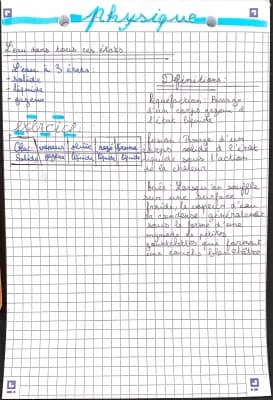 physique
L'eau dans tous ces états
L'eau à 3 états:
- solide
- liquide
- gazeux
Définitions:
liquéfaction: Passage
d'un corps gazeux à
l'état liquide
exercice
fusion: Passage d'un
corps solide à l'état
liquide sous l'action
de la chaleur
vapeur pluie brume
Solide gazeux liquide liquide liquide
buée: Lorsqu'on souffle
sur une surface
froide, la vapeur d'eau
se condense généralement
sous la forme d'une
de petites
gouttelettes que forment
une couche blanchâtre